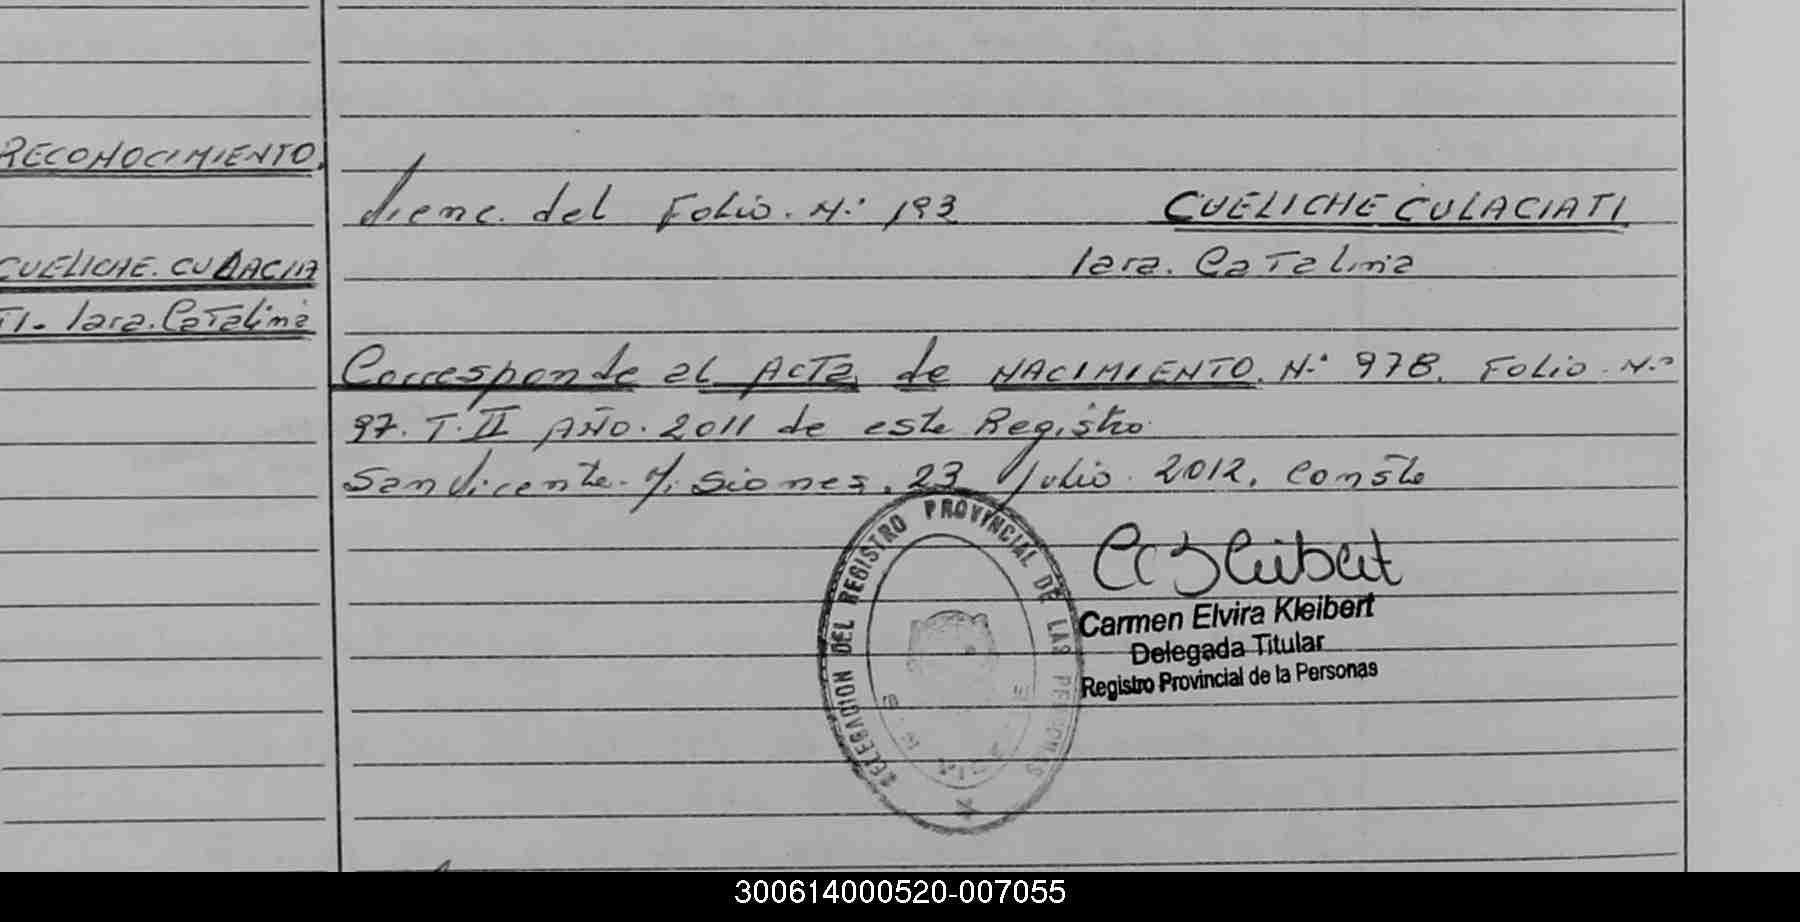 RECONOCIMIENTO.
CUELICHE. CULACIA
TI. Iara. Catalina
Viene. del Folio. N.º 193 CUELICHE CULACIATI
Iara. Catalina
Corresponde al Acta de NACIMIENTO. N.º 978. Folio. N.º
97. T. II AÑO. 2011 de este Registro
San Vicente. Misiones. 23 Julio. 2012. Conste
DELEGACION DEL REGISTRO PROVINCIAL DE LAS PERSONAS
Carmen Elvira Kleibert
Delegada Titular
Registro Provincial de la Personas
300614000520-007055